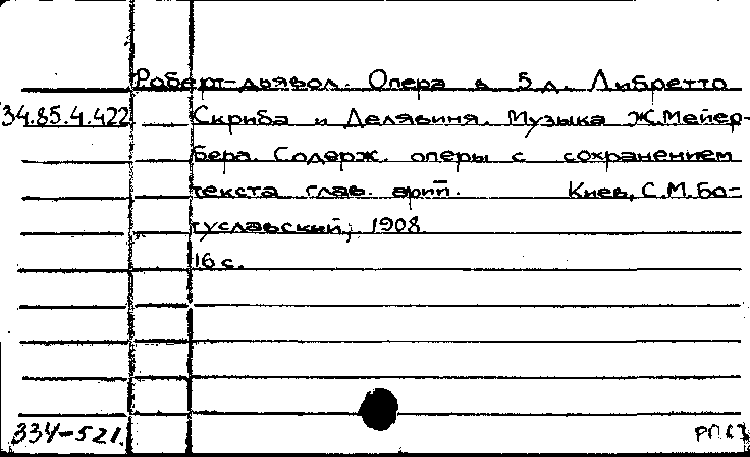 Роберт-дьявол. Опера в 5 д. Либретто
34.85.4.422 Скриба и Делявиня. Музыка Ж.Мейер-
бера. Содерж. оперы с сохранением
текста глав. арий. Киев, С.М. Бо-
гуславский, 1908.
16 с.
334-521.